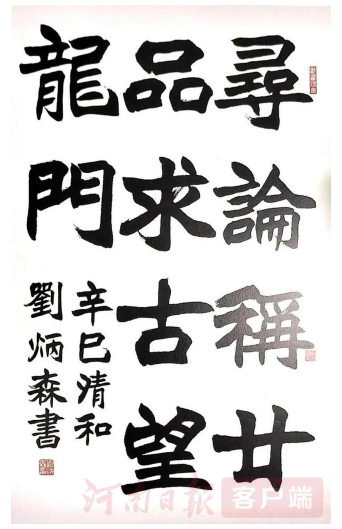 尋論稱廿
品求古望
龍門
辛巳清和
劉炳森書
河南日報
客户端